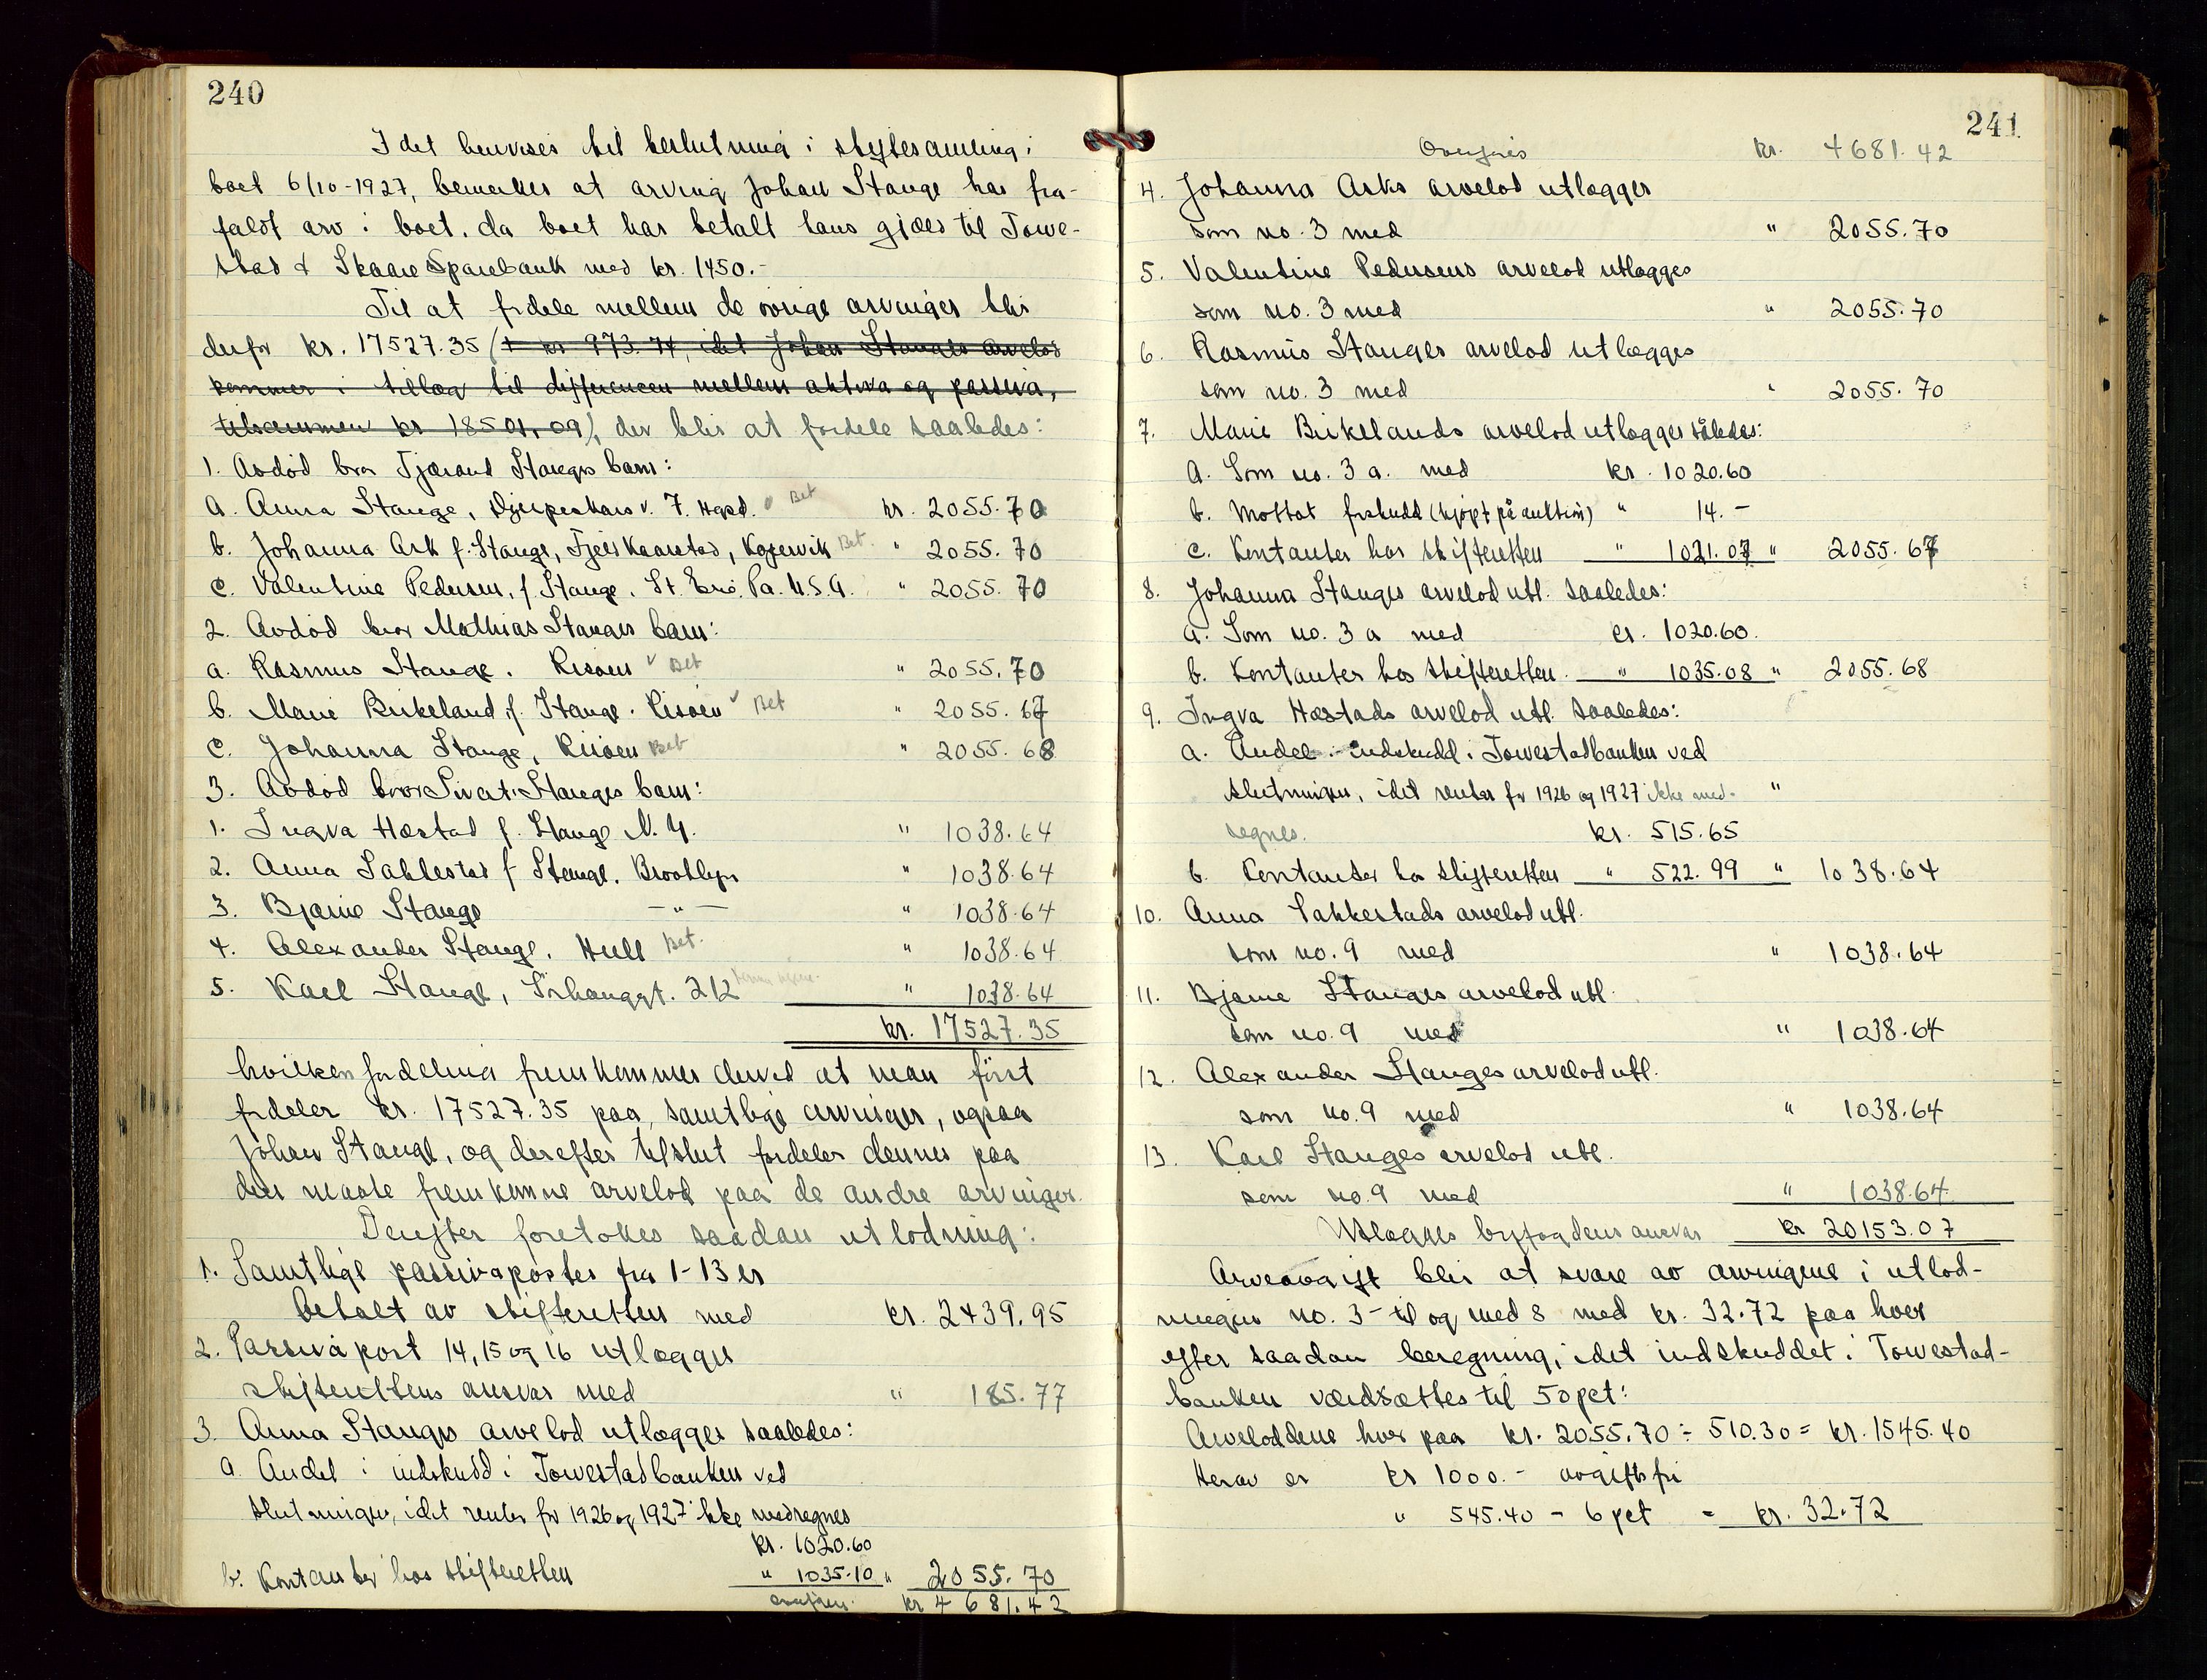 240
I det henvises til beslutning i skiftesamling i
boet 6/10-1927, bemerkes at arving Johan Stange har fra-
faldt arv i boet, da boet har betalt hans gjæld til Torve-
stad & Skaare Sparebank med kr. 1450.-
Til at fordele mellem de øvrige arvinger blir
derfor kr. 17527.35 (+ kr 973.74, idet Johan Stanges arvelod
kommer i tillæg til differencen mellem aktiva og passiva,
tilsammen kr 18501,09), der blir at fordele saaledes:
1. Avdød bror Tjærand Stanges barn:
a. Anna Stange, Djupeskars v. 7. Hgsd. Bet kr. 2055.70
b. Johanna Ask f. Stange, Fjels Kaarstad, Kopervik Bet. " 2055.70
c. Valentine Pedersen, f. Stange. St. Erie, Pa. U.S.A. " 2055.70
2. Avdød bror Mathias Stanges barn:
a. Rasmus Stange. Risøen Bet " 2055.70
b. Marie Birkeland f. Stange. Risøen Bet " 2055.67
c. Johanna Stange, Risøen Bet " 2055.68
3. Avdød bror Sivert Stanges barn:
1. Ingva Hæstad f. Stange N.Y. " 1038.64
2. Anna Sakkestad f Stange. Brooklyn " 1038.64
3. Bjarne Stange —"— " 1038.64
4. Alexander Stange. Hull Bet. " 1038.64
5. Karl Stange, Sørhauggt. 212 " 1038.64
kr. 17527.35
hvilken fordeling fremkommer derved at man først
fordeler kr. 17527.35 paa samtlige arvinger, ogsaa
Johan Stange, og derefter tilslut fordeler dennes paa
den maate fremkomne arvelod paa de andre arvinger.
Derefter foretokes saadan utlodning:
1. Samtlige passivaposter fra 1-13 er
betalt av skifteretten med kr. 2439.95
2. Passiva post 14, 15 og 16 utlægges
skifterettens ansvar med " 185.77
3. Anna Stanges arvelod utlægges saaledes:
a. Andel i indskudd i Torvestadbanken ved
slutningen, idet renter for 1926 og 1927 ikke medregnes
kr. 1020.60
b. Kontanter hos skifteretten " 1035.10 " 2055.70
overføres kr 4681.42
241
Overføres kr. 4681.42
4. Johanna Asks arvelod utlægges
som no. 3 med " 2055.70
5. Valentine Pedersens arvelod utlægges
som no. 3 med " 2055.70
6. Rasmus Stanges arvelod utlægges
som no. 3 med " 2055.70
7. Marie Birkelands arvelod utlægges således:
a. Som no. 3 a. med kr. 1020.60
b. Mottat forskudd (kjøpt på auktion) " 14.-
c. Kontanter hos skifteretten " 1021.07 " 2055.67
8. Johanna Stanges arvelod utl. saaledes:
a. Som no. 3 a med kr. 1020.60.
b. Kontanter hos skifteretten. " 1035.08 " 2055.68
9. Ingva Hæstads arvelod utl. saaledes:
a. Andel i indskudd i Torvestadbanken ved
slutningen, idet renter for 1926 og 1927 ikke med- "
regnes. kr. 515.65
b. Kontanter hos skifteretten " 522.99 " 1038.64
10. Anna Sakkestads arvelod utl.
som no. 9 med " 1038.64
11. Bjarne Stanges arvelod utl.
som no. 9 med " 1038.64
12. Alexander Stanges arvelod utl.
som no. 9 med " 1038.64
13. Karl Stanges arvelod utl.
som no. 9 med " 1038.64
Utlægges byfogdens ansvar kr 20153.07
Arveavgift blir at svare av arvingene i utlod-
ningens no. 3 - til og med 8 med kr. 32.72 paa hver
efter saadan beregning, idet indskuddet i Torvestad-
banken værdsættes til 50 pct:
Arveloddene hver paa kr. 2055.70 ÷ 510.30 = kr. 1545.40
Herav er kr 1000.- avgiftsfri
" 545.40 - 6 pct = kr. 32.72